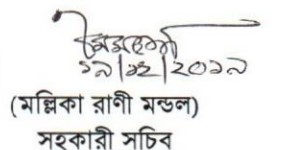 ১৯/১২/২০১৯
(মল্লিকা রাণী মন্ডল)
সহকারী সচিব